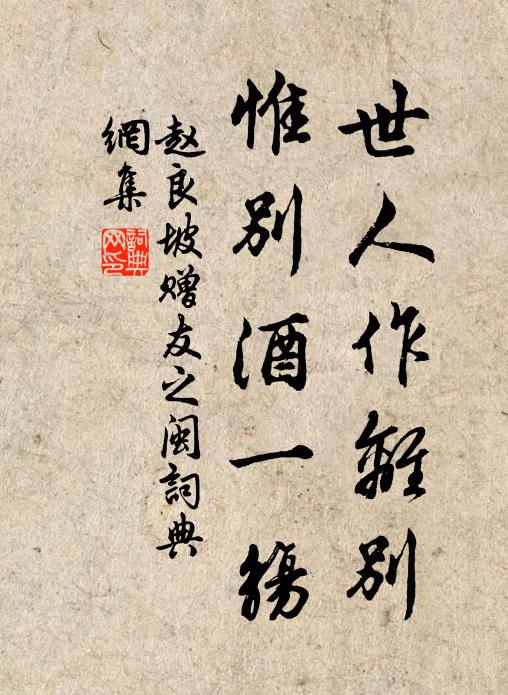 世人作離别
惟别酒一觴
赵良坡赠友之闽詞典
網集
詞典
网印